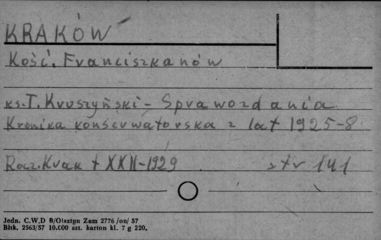 KRAKÓW
Kość. Franciszkanów
ks. T. Kruszyński - Sprawozdania
Kronika konserwatorska z lat 1925-8
Rocz. Krak t XXII-1929 str 141
Jedn. C.W.D R/Olsztyn Zam 2776 /on/ 57
Bltk. 2563/57 10.000 szt. karton kl. 7 g 220.